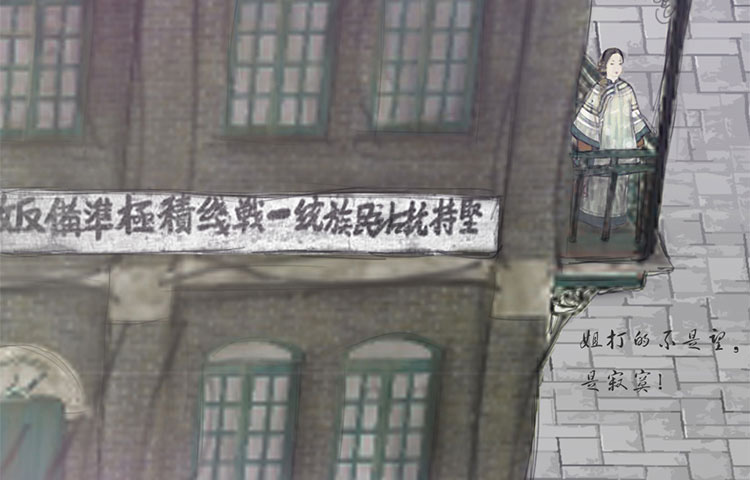 堅持抗日民族統一戰线積極準備反
姐打的不是望，
是寂寞！